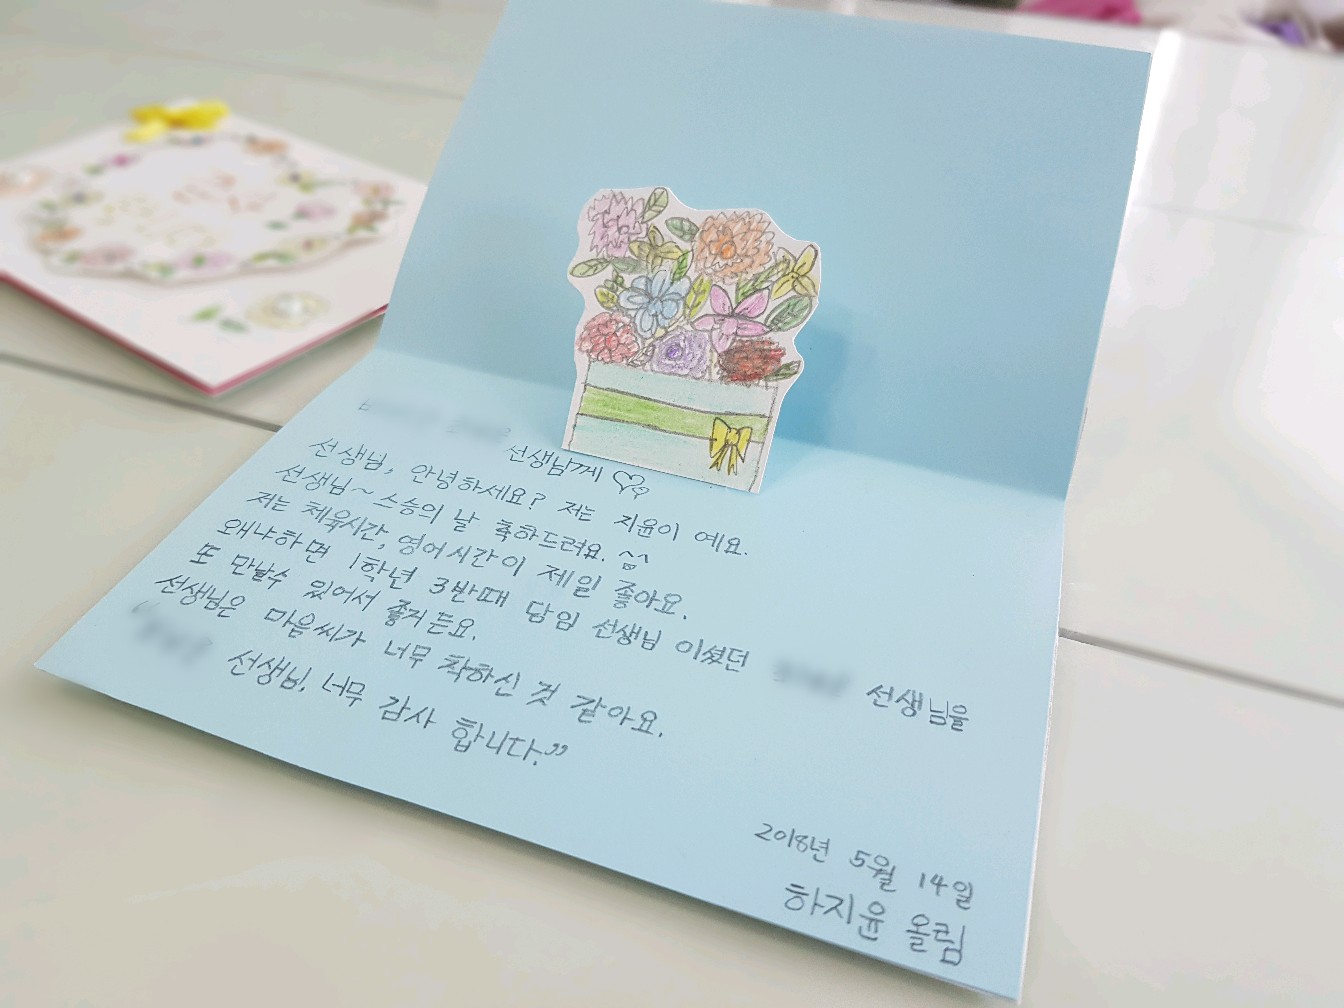 선생님께
선생님, 안녕하세요? 저는 지윤이 예요.
선생님~ 스승의 날 축하드려요. ^^
저는 체육시간, 영어시간이 제일 좋아요.
왜냐하면 1학년 3반때 담임 선생님 이셨던 선생님을
또 만날수 있어서 좋거든요.
선생님은 마음씨가 너무 착하신 것 같아요.
“ 선생님, 너무 감사 합니다.”
2018년 5월 14일
하지윤 올림